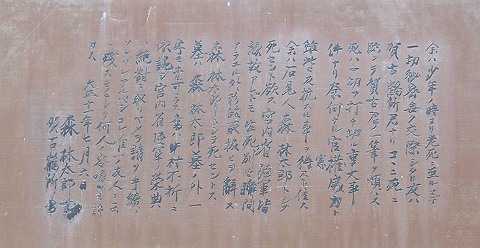 余ハ少年ノ時ヨリ老死ニ至ルマデ
一切秘密無ク交際シタル友ハ
賀古鶴所君ナリコヽニ死ニ
臨ンテ賀古君ノ一筆ヲ煩ハス
死ハ一切ヲ打チ切ル重大事
件ナリ奈何ナル官權威力ト
憲
雖此ニ反抗スル事ヲ得スト信ス
余ハ石見人森林太郎トシテ
死セント欲ス宮内省陸軍皆
縁故アレドモ生死別ルヽ瞬間
アラユル外形的取扱ヒヲ辭ス
森林太郎トシテ死セントス
墓ハ森林太郎墓ノ外一
字モホル可ラス書ハ中村不折ニ
依託シ宮内省陸軍ノ榮典
ハ絶對ニ取リヤメヲ請フ手續ハ
ソレゾレアルベシコレ唯一ノ友人ニ云
ヒ残スモノニシテ何人ノ容喙ヲモ許
サス 大正十一年七月六日
森林太郎言
賀古鶴所書